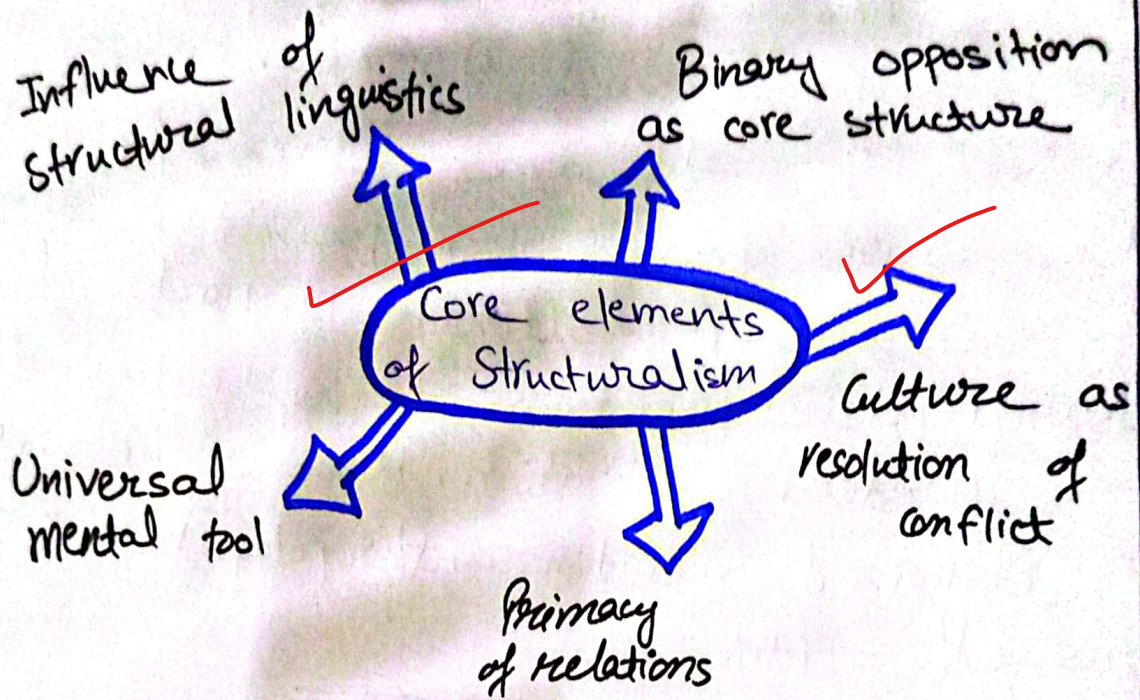 Influence of
structural linguistics
Binary opposition
as core structure
Core elements
of Structuralism
Culture as
resolution of
conflict
Universal
mental tool
Primacy
of relations